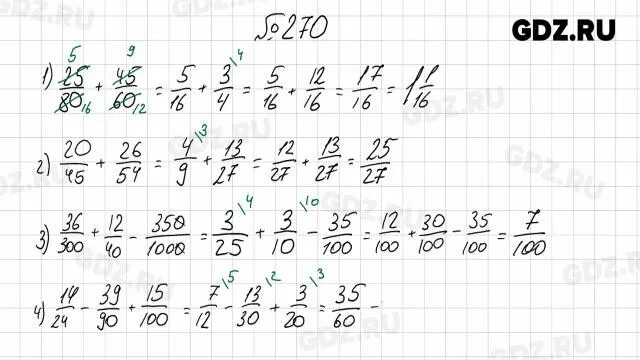 №270
GDZ.RU
1) 25/80 + 45/60 = 5/16 + 3/4 = 5/16 + 12/16 = 17/16 = 1 1/16
5 9 16 12 \4
2) 20/45 + 26/54 = 4/9 + 13/27 = 12/27 + 13/27 = 25/27
\3
3) 36/300 + 12/40 - 350/1000 = 3/25 + 3/10 - 35/100 = 12/100 + 30/100 - 35/100 = 7/100
\4 \10
4) 14/24 - 39/90 + 15/100 = 7/12 - 13/30 + 3/20 = 35/60 -
\5 \2 \3